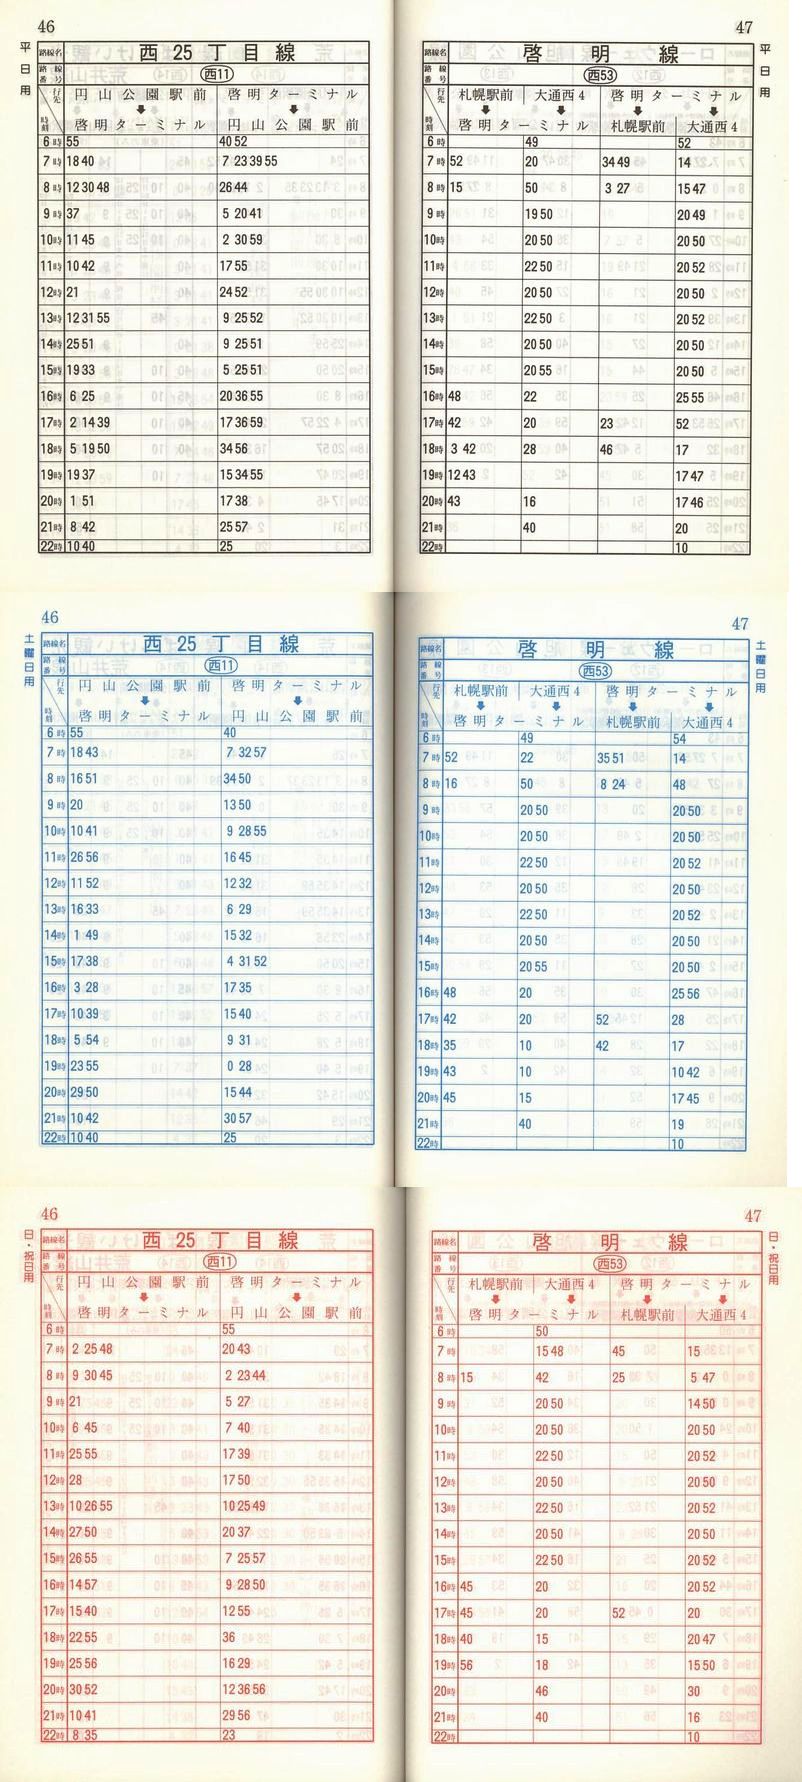 46
平日用
路線名 西25丁目線
路線番号 西11
行先 円山公園駅前 啓明ターミナル
時刻 啓明ターミナル 円山公園駅前
6時 55 40 52
7時 18 40 7 23 39 55
8時 12 30 48 26 44
9時 37 5 20 41
10時 11 45 2 30 59
11時 10 42 17 55
12時 21 24 52
13時 12 31 55 9 25 52
14時 25 51 9 25 51
15時 19 33 5 25 51
16時 6 25 20 36 55
17時 2 14 39 17 36 59
18時 5 19 50 34 56
19時 19 37 15 34 55
20時 1 51 17 38
21時 8 42 25 57
22時 10 40 25
47
平日用
路線名 啓明線
路線番号 西53
行先 札幌駅前 大通西4 啓明ターミナル
時刻 啓明ターミナル 札幌駅前 大通西4
6時 49 52
7時 52 20 34 49 14
8時 15 50 3 27 15 47
9時 19 50 20 49
10時 20 50 20 50
11時 22 50 20 52
12時 20 50 20 50
13時 22 50 20 52
14時 20 50 20 50
15時 20 55 20 50
16時 48 22 25 55
17時 42 20 23 52
18時 3 42 28 46 17
19時 12 43 17 47
20時 43 16 17 46
21時 40 20
22時 10
46
土曜日用
路線名 西25丁目線
路線番号 西11
行先 円山公園駅前 啓明ターミナル
時刻 啓明ターミナル 円山公園駅前
6時 55 40
7時 18 43 7 32 57
8時 16 51 34 50
9時 20 13 50
10時 10 41 9 28 55
11時 26 56 16 45
12時 11 52 12 32
13時 16 33 6 29
14時 1 49 15 32
15時 17 38 4 31 52
16時 3 28 17 35
17時 10 39 15 40
18時 5 54 9 31
19時 23 55 0 28
20時 29 50 15 44
21時 10 42 30 57
22時 10 40 25
47
土曜日用
路線名 啓明線
路線番号 西53
行先 札幌駅前 大通西4 啓明ターミナル
時刻 啓明ターミナル 札幌駅前 大通西4
6時 49 54
7時 52 22 35 51 14
8時 16 50 8 24 48
9時 20 50 20 50
10時 20 50 20 50
11時 22 50 20 52
12時 20 50 20 50
13時 22 50 20 52
14時 20 50 20 50
15時 20 55 20 50
16時 48 20 25 56
17時 42 20 52 28
18時 35 10 42 17
19時 43 10 10 42
20時 45 15 17 45
21時 40 19
22時 10
46
日・祝日用
路線名 西25丁目線
路線番号 西11
行先 円山公園駅前 啓明ターミナル
時刻 啓明ターミナル 円山公園駅前
6時 55
7時 2 25 48 20 43
8時 9 30 45 2 23 44
9時 21 5 27
10時 6 45 7 40
11時 25 55 17 39
12時 28 17 50
13時 10 26 55 10 25 49
14時 27 50 20 37
15時 26 55 7 25 57
16時 14 57 9 28 50
17時 15 40 12 55
18時 22 55 36
19時 25 56 16 29
20時 30 52 12 36 56
21時 10 41 29 56
22時 8 35 23
47
日・祝日用
路線名 啓明線
路線番号 西53
行先 札幌駅前 大通西4 啓明ターミナル
時刻 啓明ターミナル 札幌駅前 大通西4
6時 50
7時 15 48 45 15
8時 15 42 25 5 47
9時 20 50 14 50
10時 20 50 20 50
11時 22 50 20 52
12時 20 50 20 50
13時 22 50 20 52
14時 20 50 20 50
15時 22 50 20 52
16時 45 20 20 52
17時 45 20 52 20
18時 40 15 20 47
19時 56 18 15 50
20時 46 30
21時 40 16
22時 10